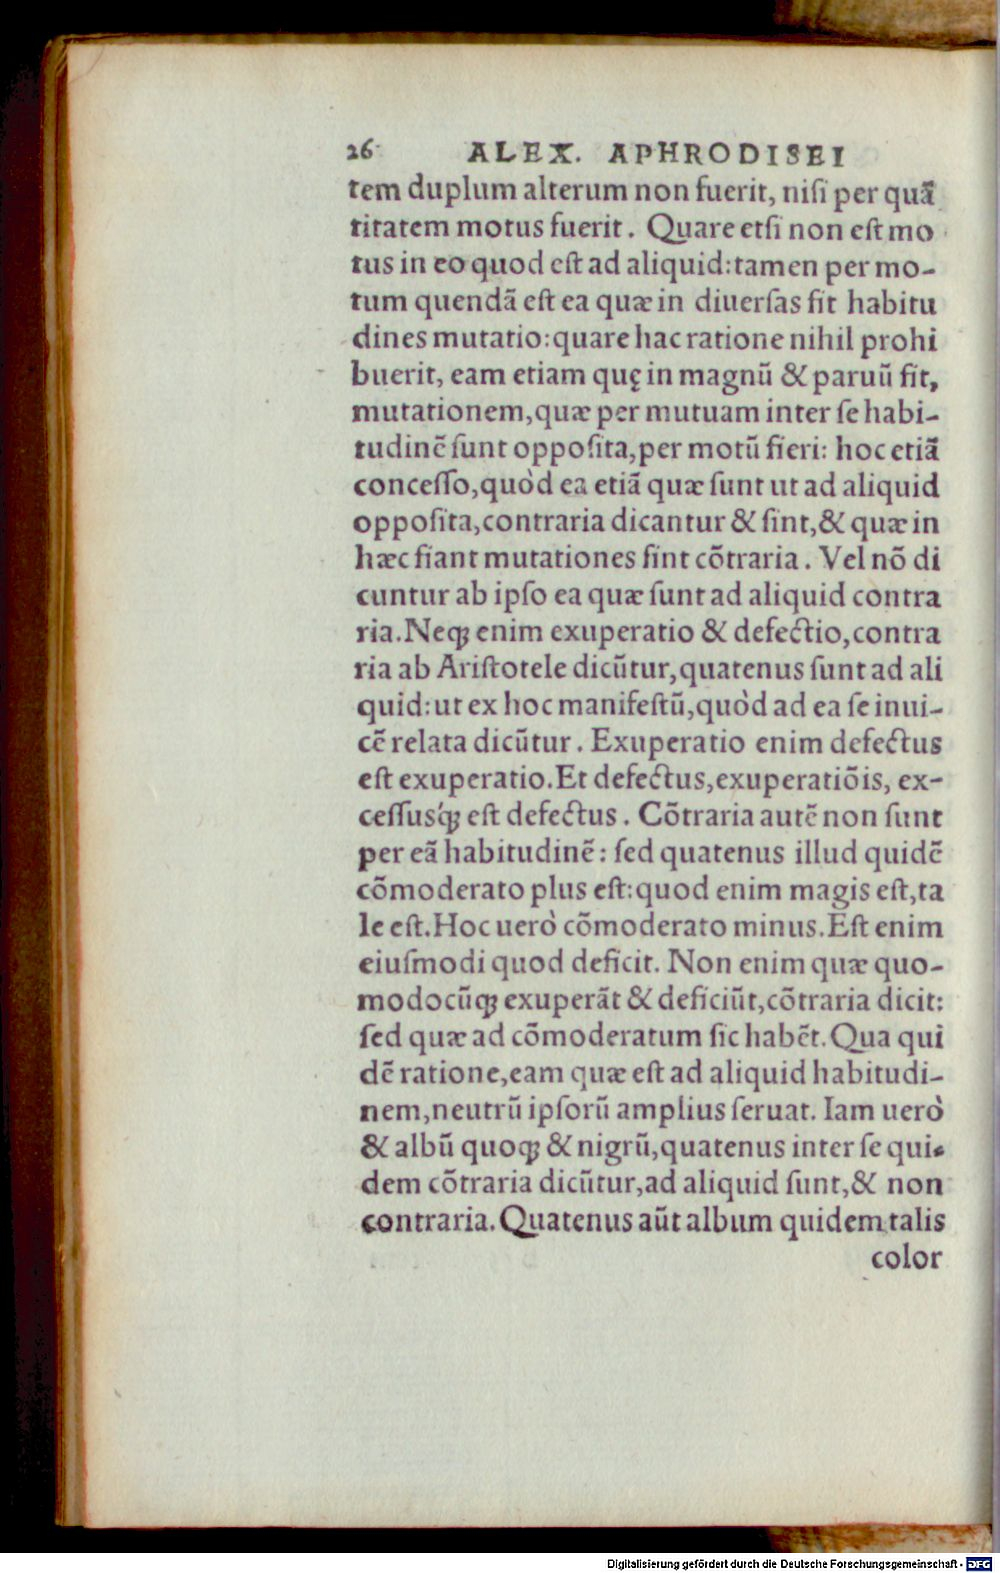 26 ALEX. APHRODISEI
tem duplum alterum non fuerit, niſi per quã
titatem motus fuerit. Quare etſi non eſt mo
tus in eo quod eſt ad aliquid: tamen per mo-
tum quendã eſt ea quæ in diuerſas fit habitu
dines mutatio: quare hac ratione nihil prohi
buerit, eam etiam quę in magnũ & paruũ fit,
mutationem, quæ per mutuam inter ſe habi-
tudinẽ ſunt oppoſita, per motũ fieri: hoc etiã
conceſſo, quòd ea etiã quæ ſunt ut ad aliquid
oppoſita, contraria dicantur & ſint, & quæ in
hæc fiant mutationes ſint cõtraria. Vel nõ di
cuntur ab ipſo ea quæ ſunt ad aliquid contra
ria. Neqꝫ enim exuperatio & defectio, contra
ria ab Ariſtotele dicũtur, quatenus ſunt ad ali
quid: ut ex hoc manifeſtũ, quòd ad ea ſe inui-
cẽ relata dicũtur. Exuperatio enim defectus
eſt exuperatio. Et defectus, exuperatiõis, ex-
ceſſusq́ꝫ eſt defectus. Cõtraria autẽ non ſunt
per eã habitudinẽ: ſed quatenus illud quidẽ
cõmoderato plus eſt: quod enim magis eſt, ta
le eſt. Hoc uerò cõmoderato minus. Eſt enim
eiuſmodi quod deficit. Non enim quæ quo-
modocũqꝫ exuperãt & deficiũt, cõtraria dicit:
ſed quæ ad cõmoderatum ſic habẽt. Qua qui
dẽ ratione, eam quæ eſt ad aliquid habitudi-
nem, neutrũ ipſorũ amplius ſeruat. Iam uerò
& albũ quoqꝫ & nigrũ, quatenus inter ſe qui-
dem cõtraria dicũtur, ad aliquid ſunt, & non
contraria. Quatenus aũt album quidem talis
color
Digitalisierung gefördert durch die Deutsche Forschungsgemeinschaft - DFG